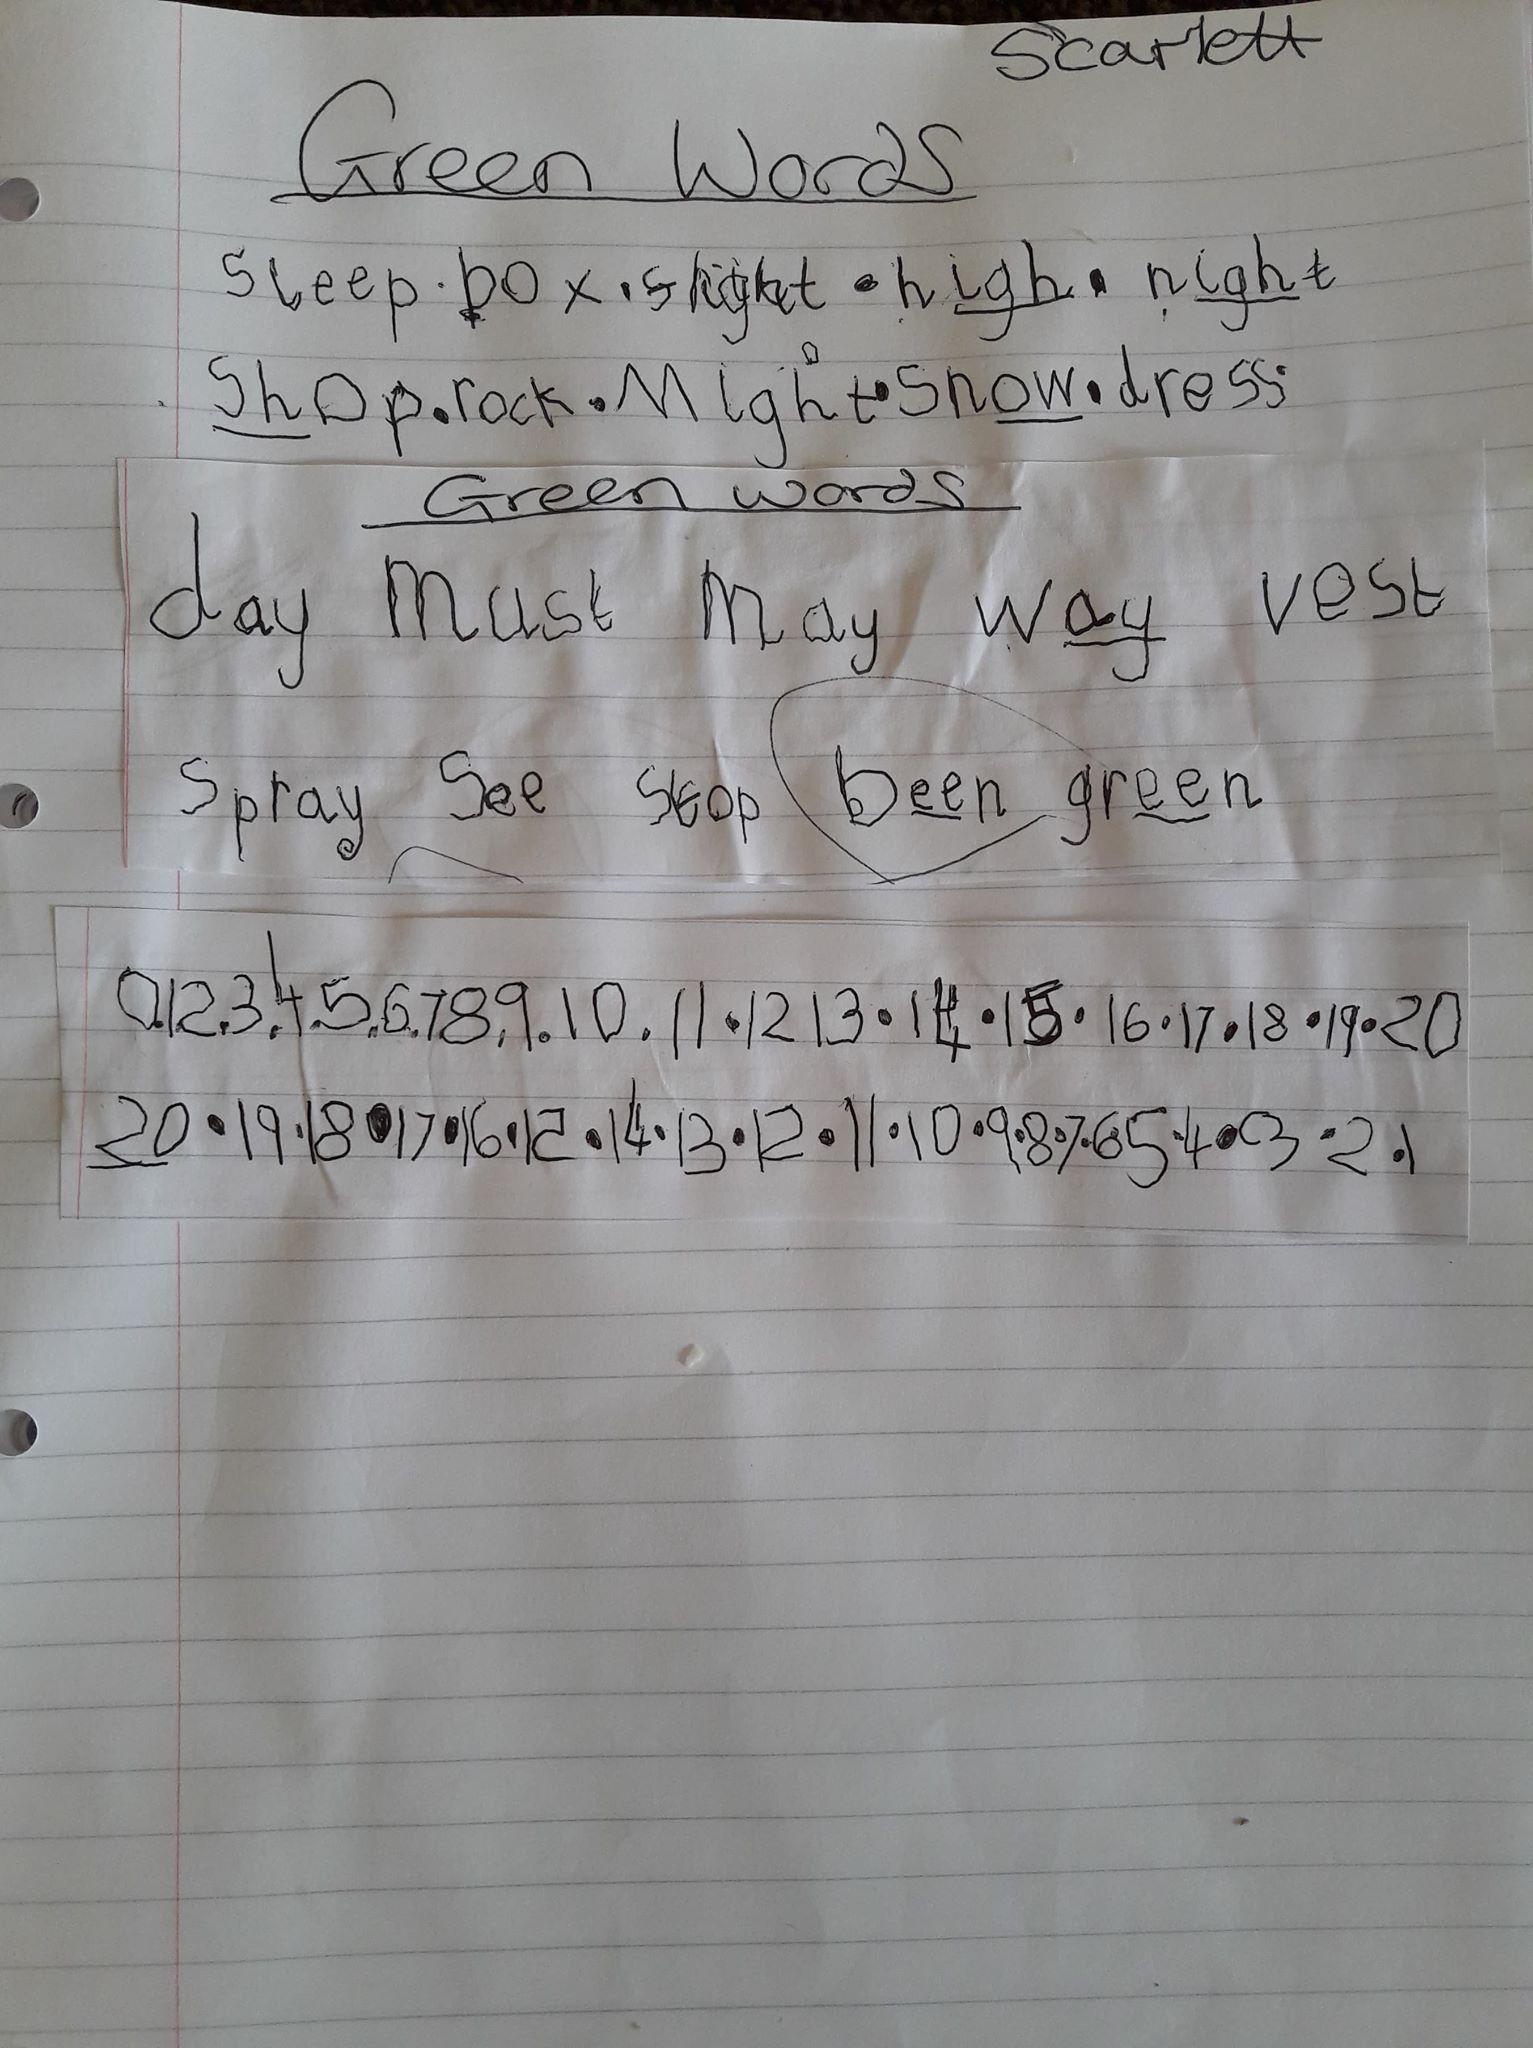 Scarlett
Green Words
Sleep . box . slight . high . night
Shop . rock . Might . Snow . dress
Green words
day Must May way vest
Spray See Stop been green
0.12.3.4.5.6.78.9.10.11.12 13.14.15.16.17.18.19.20
20.19.18.17.16.12.14.13.12.11.10.9.8.7.65.4.3.2.1